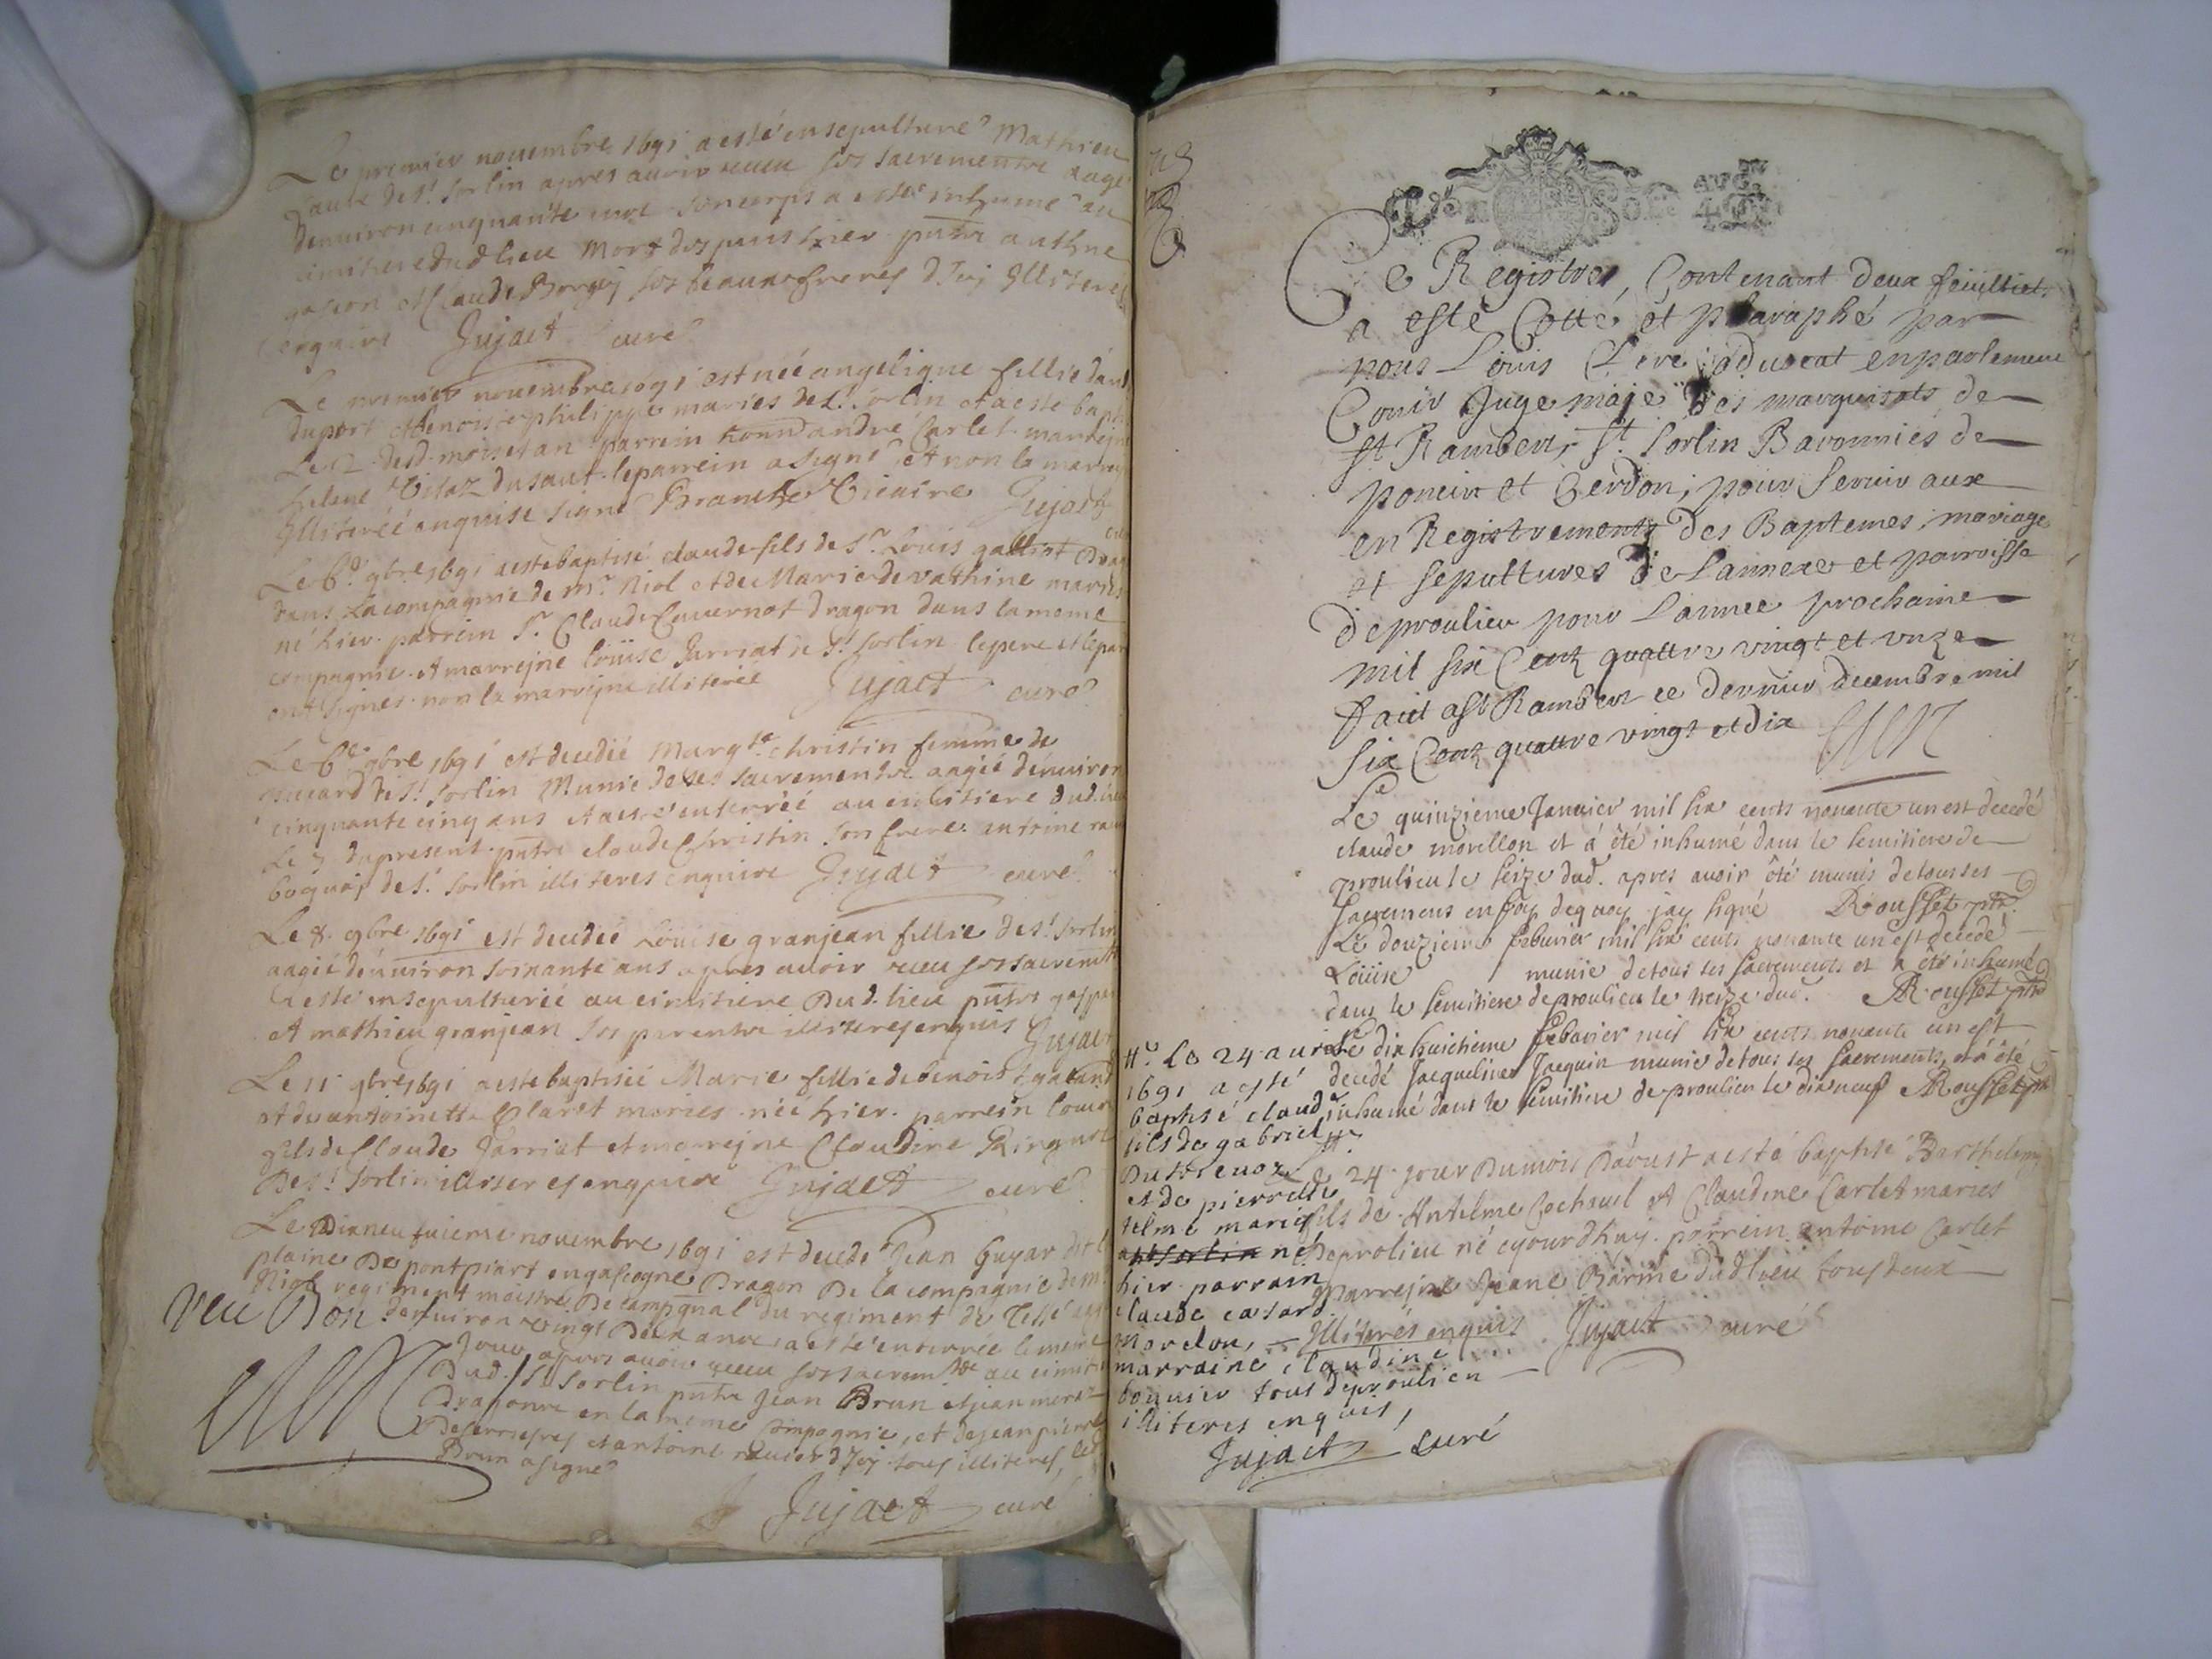 Le premier nouembre 1691 a esté ensepulturé Mathieu
de St. Sorlin apres auoir receu ses sacrements aagé
denuiron cinquante son corps a esté inhumé au
cimitiere dud lieu mort des puis hier pnts anthne
et Claude Borgey ses beaux freres d'Icy Illiteres
enquire Jujact curé
Le premier nouembre 1691 est néé angelique fillie d'an
duport et benoiste philippe maries de St. Sorlin et a esté bapt
Le 2 dud. mois et an parrein honn andre Carlet marrejne
helene du saut. le parrein a signé et non la marrejne
Illiteréé enquise signé Branche Vicaire Jujact
curé
Le 6e 9bre 1691 a esté baptisé claude fils de Sr. Louis gallist Drag
dans La compagnie de Mr. Riol et de Marie de vathine maries
né hier. parrein Sr. Claude Couernot dragon dans la meme
compagnie. et marrejne loüise Jarriat de St. Sorlin le pere et le par
ont signés. non la marrejne illiteréé Jujact curé
Le 6e 9bre 1691 est decedéé Margte. christin femme de
de St. Sorlin Munie de ses sacrements aagéé denuiron
cinquante cinq ans et a esté enterréé au cimitiere dud. lieu
Le 7 du present. pnts claude Christin son frere. antoine
de St. Sorlin illiteres enquire Jujact curé
Le 8. 9bre 1691 est decedéé Loüise granjean fillie de St. Sorlin
aagéé denuiron soixante ans apres auoir receu ses sacremts
a esté ensepulturéé au cimitiere Dud. lieu pnts gaspar
et mathieu granjean ses parents illiteres enquis Jujact
Le 11 9bre 1691 a esté baptiséé Marie fillie de benoist galand
et de antoinette Claret maries. néé hier. parrein louis
fils de Claude Jarriat et marrejne Claudine Ringuet
De St. Sorlin illiteres enquire Jujact curé
Le Dixneufuieme nouembre 1691 est decedé Jean Guyar dit la
plaine De pontpiart en gascogne Dragon De la compagnie de mr
Riol regiment mestre De camp gnal du regiment de Tessé aagé
denuiron vingt Deux ans, a esté enterréé le meme
Jour apres auoir receu ses sacremts au cimiti
Dud. St. Sorlin pnts Jean Brun et jean
dragons en la meme compagnie, et de jean pierre
et antoine d'Icy tous illiteres, led
Brun a signé
Jujact curé
Veu Bon
Ce Registre, Contenant deux feüilliets
a esté Cotté et pharaphé par
nous Louis aduocat en parlement
Conir Juge maje des marquisats de
St Rambert, St. Sorlin Baronnies de
poncin et Cerdon, pour seruir aux
en Registrements des Baptemes, mariage
et sepultures de Lannexe et parroisse
de proulieu pour Lannee prochaine
mil six Cent quattre vingt et vnze
faict a St Rambert ce dernier decembre mil
six Cent quattre vingt et dix
Le quinzieme Januier mil six cents nonante un est decedé
claude morellon et à été inhumé dans le semitiere de
proulieu le seize dud. apres auoir été munis de tous ses
sacremens en foy de quoy jay signé Rousset ptre
Le douzieme feburier mil six cents nonante un est decedé
Loüise munie de tous ses sacrements et a été inhumé
dans le semitiere de proulieu le treize dud. Rousset ptre
Le dix huictieme feburier mil six cents nonante un est
decedé Jacqueline Jacquin munie de tous ses sacrements, et à été
inhumé dans le semitiere de proulieu le dix neuf Rousset ptre
Le 24. jour Du mois D'aoust a esté baptisé Barthelemy
fils de Anthelme Cochard et Claudine Carlet maries
De prolieu né ejourdhuy. parrein antoine Carlet
Marrejne Jeane Barme dud lieu tous deux
Illiterés enquis Jujact curé
Le 24 auril
1691 a esté
baptisé claude
fils de gabriel
Dutreuoz
et de pierrette
telme maries
a St Sorlin né
hier parrain
claude casard
Morelon,
marraine claudine
boquier tous de proulieu
illiteres enquis,
Jujact curé